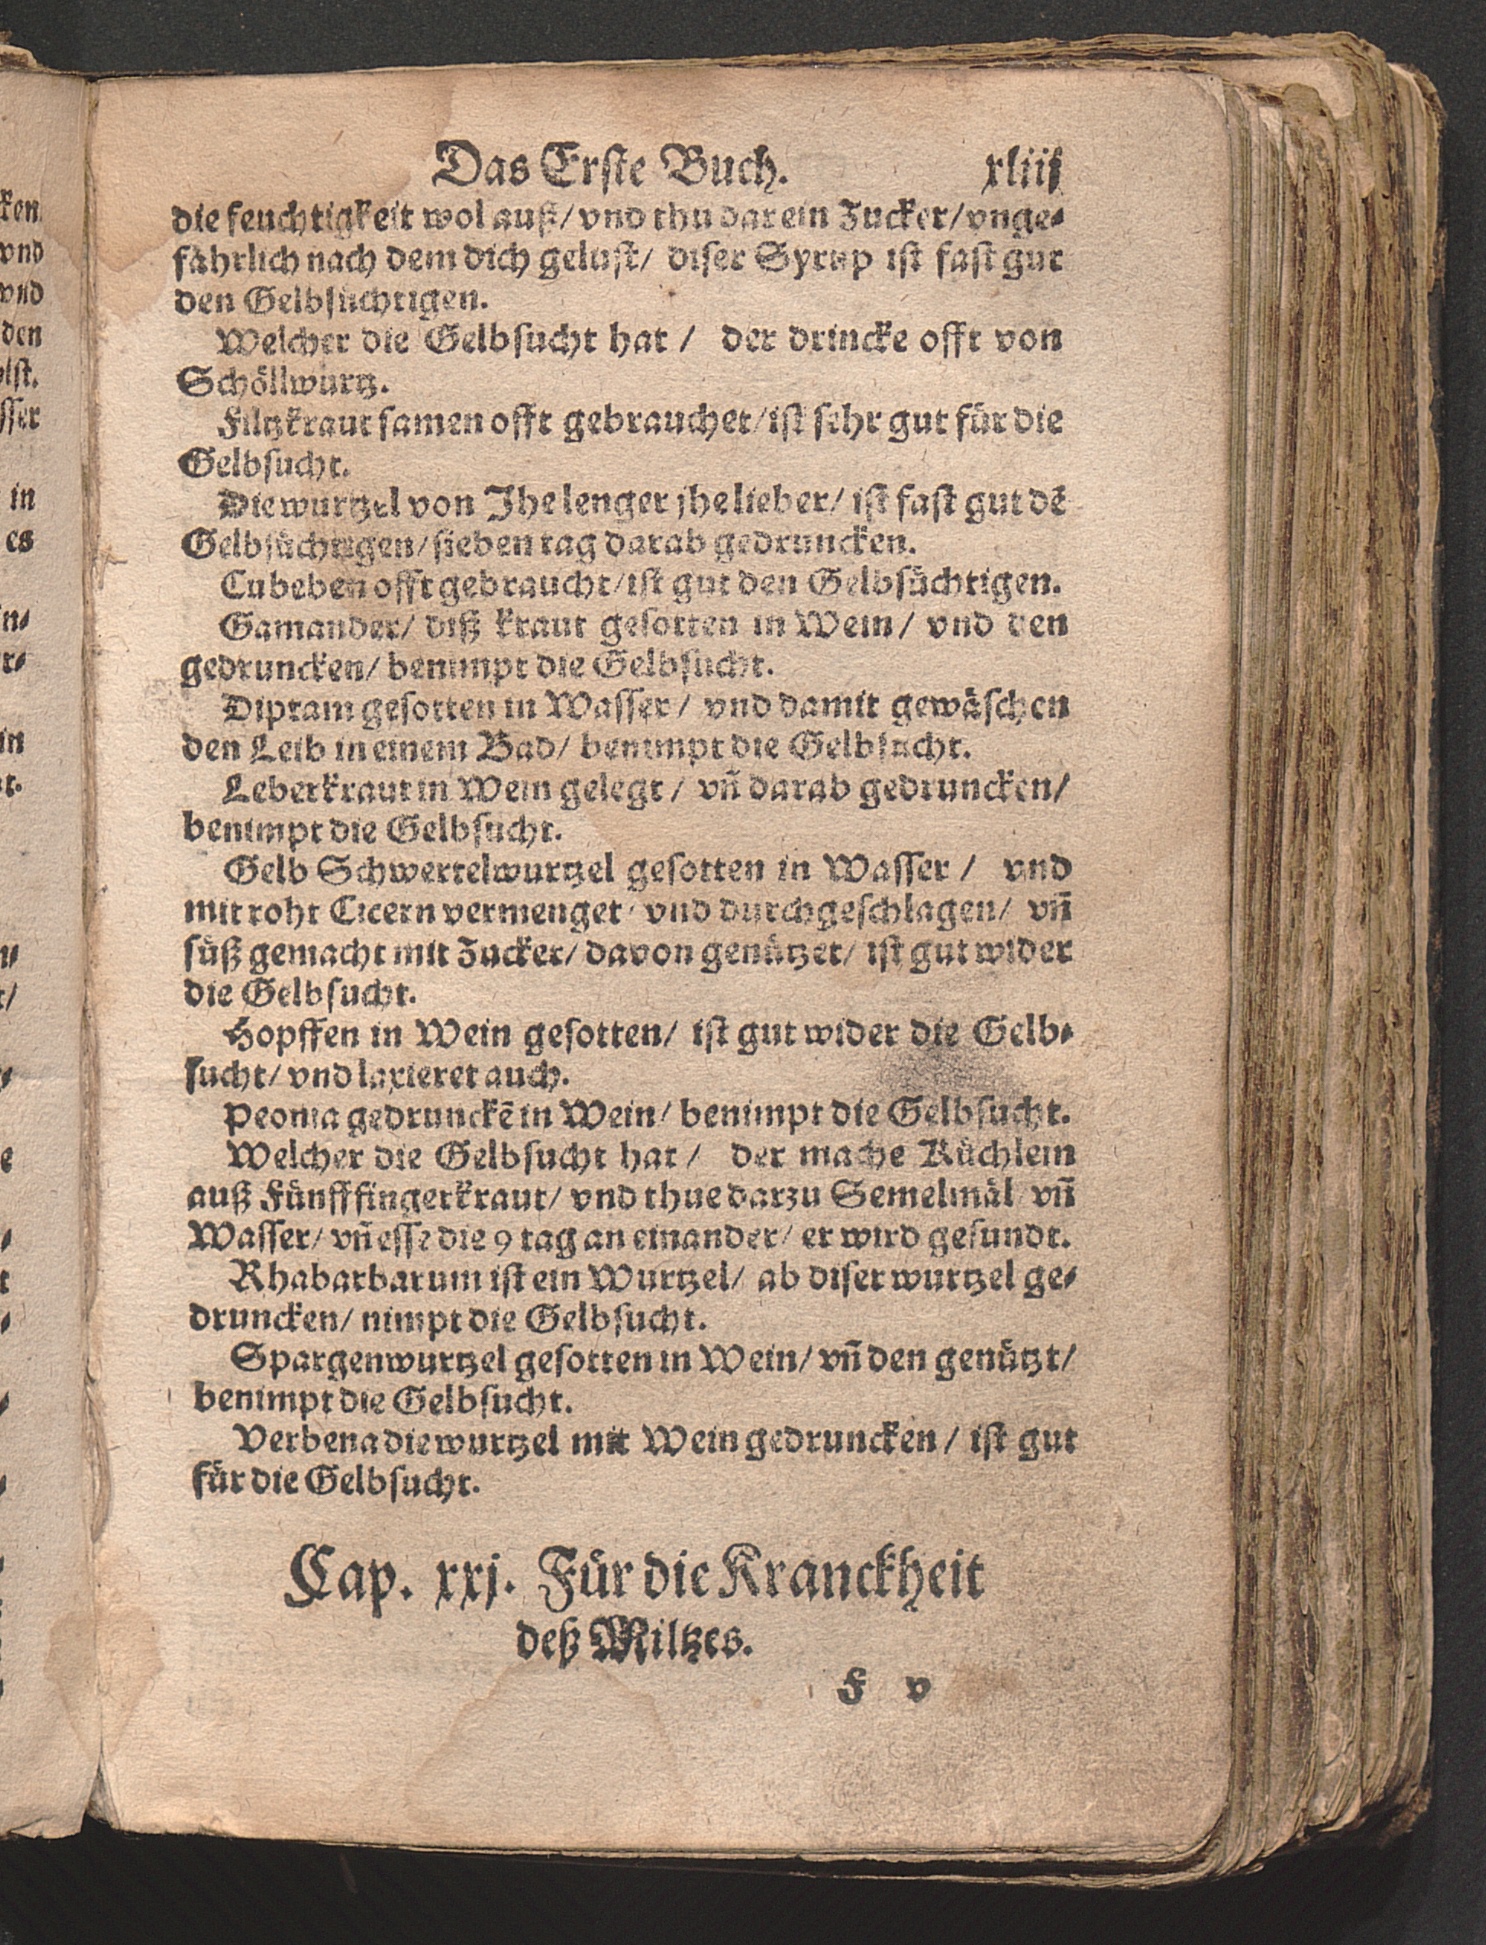 Das Erste Buch. xliij
die feuchtigkeit wol auß/ vnd thu darein Zucker/ vnge⸗
fährlich nach dem dich gelust/ diser Syrup ist fast gut
den Gelbsüchtigen.
Welcher die Gelbsucht hat / der drincke offt von
Schöllwurtz.
Filtzkraut samen offt gebrauchet/ ist sehr gut für die
Gelbsucht.
Die wurtzel von Jhe lenger jhe lieber/ ist fast gut dẽ
Gelbsüchtigen/ sieben tag darab gedruncken.
Cubeben offt gebraucht/ ist gut den Gelbsüchtigen.
Gamander/ diß kraut gesotten in Wein/ vnd den
gedruncken/ benimpt die Gelbsucht.
Diptam gesotten in Wasser/ vnd damit gewäschen
den Leib in einem Bad/ benimpt die Gelbsucht.
Leberkraut in Wein gelegt / vñ darab gedruncken/
benimpt die Gelbsucht.
Gelb Schwertelwurtzel gesotten in Wasser / vnd
mit roht Cicern vermenget/ vnd durchgeschlagen/ vñ
süß gemacht mit Zucker/ davon genützet/ ist gut wider
die Gelbsucht.
Hopffen in Wein gesotten/ ist gut wider die Gelb⸗
sucht/ vnd laxieret auch.
Peonia gedrunckẽ in Wein/ benimpt die Gelbsucht.
Welcher die Gelbsucht hat / der mache Küchlein
auß Fünfffingerkraut/ vnd thue darzu Semelmäl vñ
Wasser/ vñ esse die 9 tag an einander/ er wird gesundt.
Rhabarbarum ist ein Wurtzel/ ab diser wurtzel ge⸗
druncken/ nimpt die Gelbsucht.
Spargenwurtzel gesotten in Wein/ vñ den genützt/
benimpt die Gelbsucht.
Verbena die wurtzel mit Wein gedruncken / ist gut
für die Gelbsucht.
Cap. xxj. Für die Kranckheit
deß Miltzes.
F v